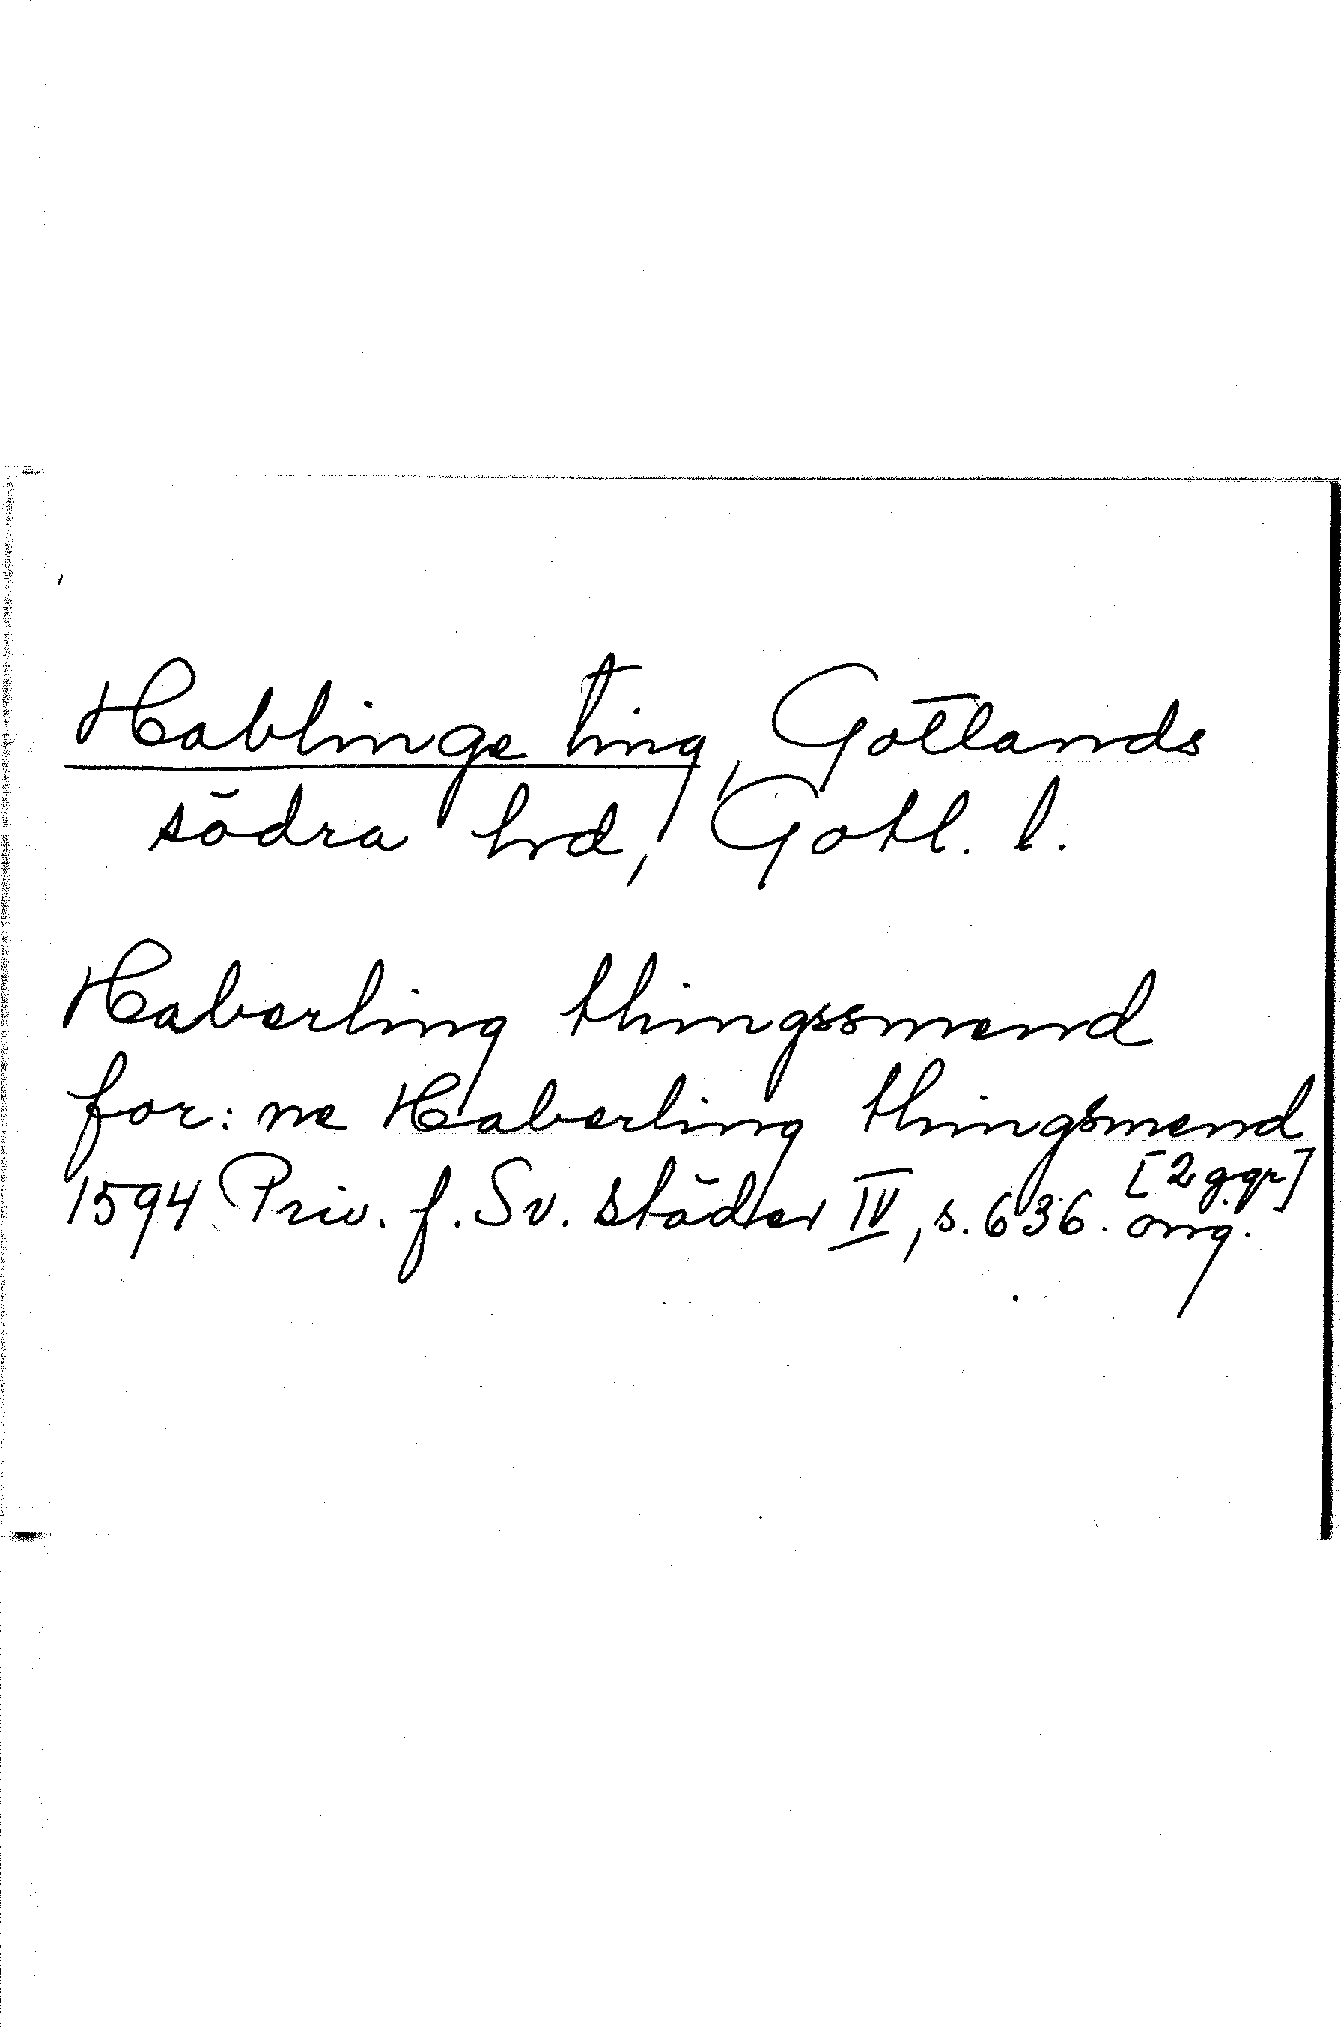 Hablinge ting, Gotlands
södra hrd, Gotl. l.
Haberling thingssmend
for: ne Haberling thingsmend [2 ggr]
1594 Priv. f. Sv. städer IV, s. 636. orig.